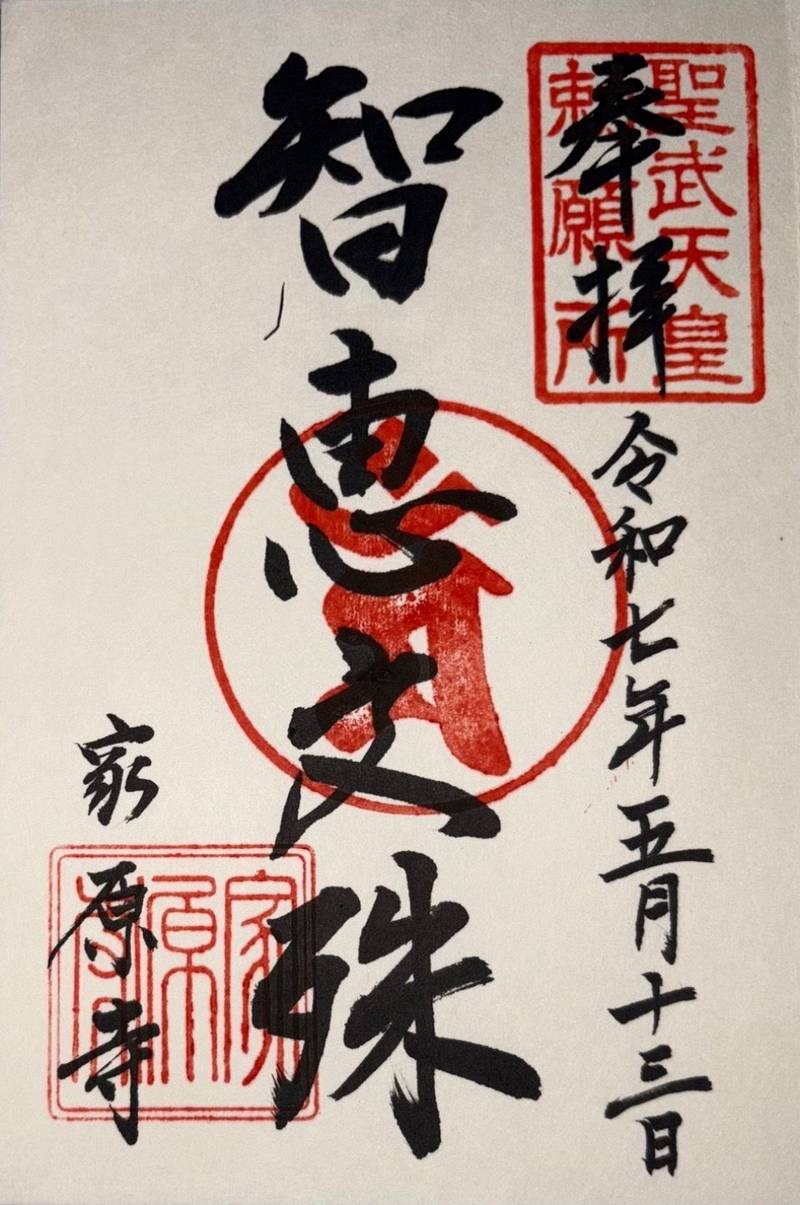 奉拝
聖武天皇
勅願所
令和七年五月十三日
智恵文殊
家原寺
家原寺